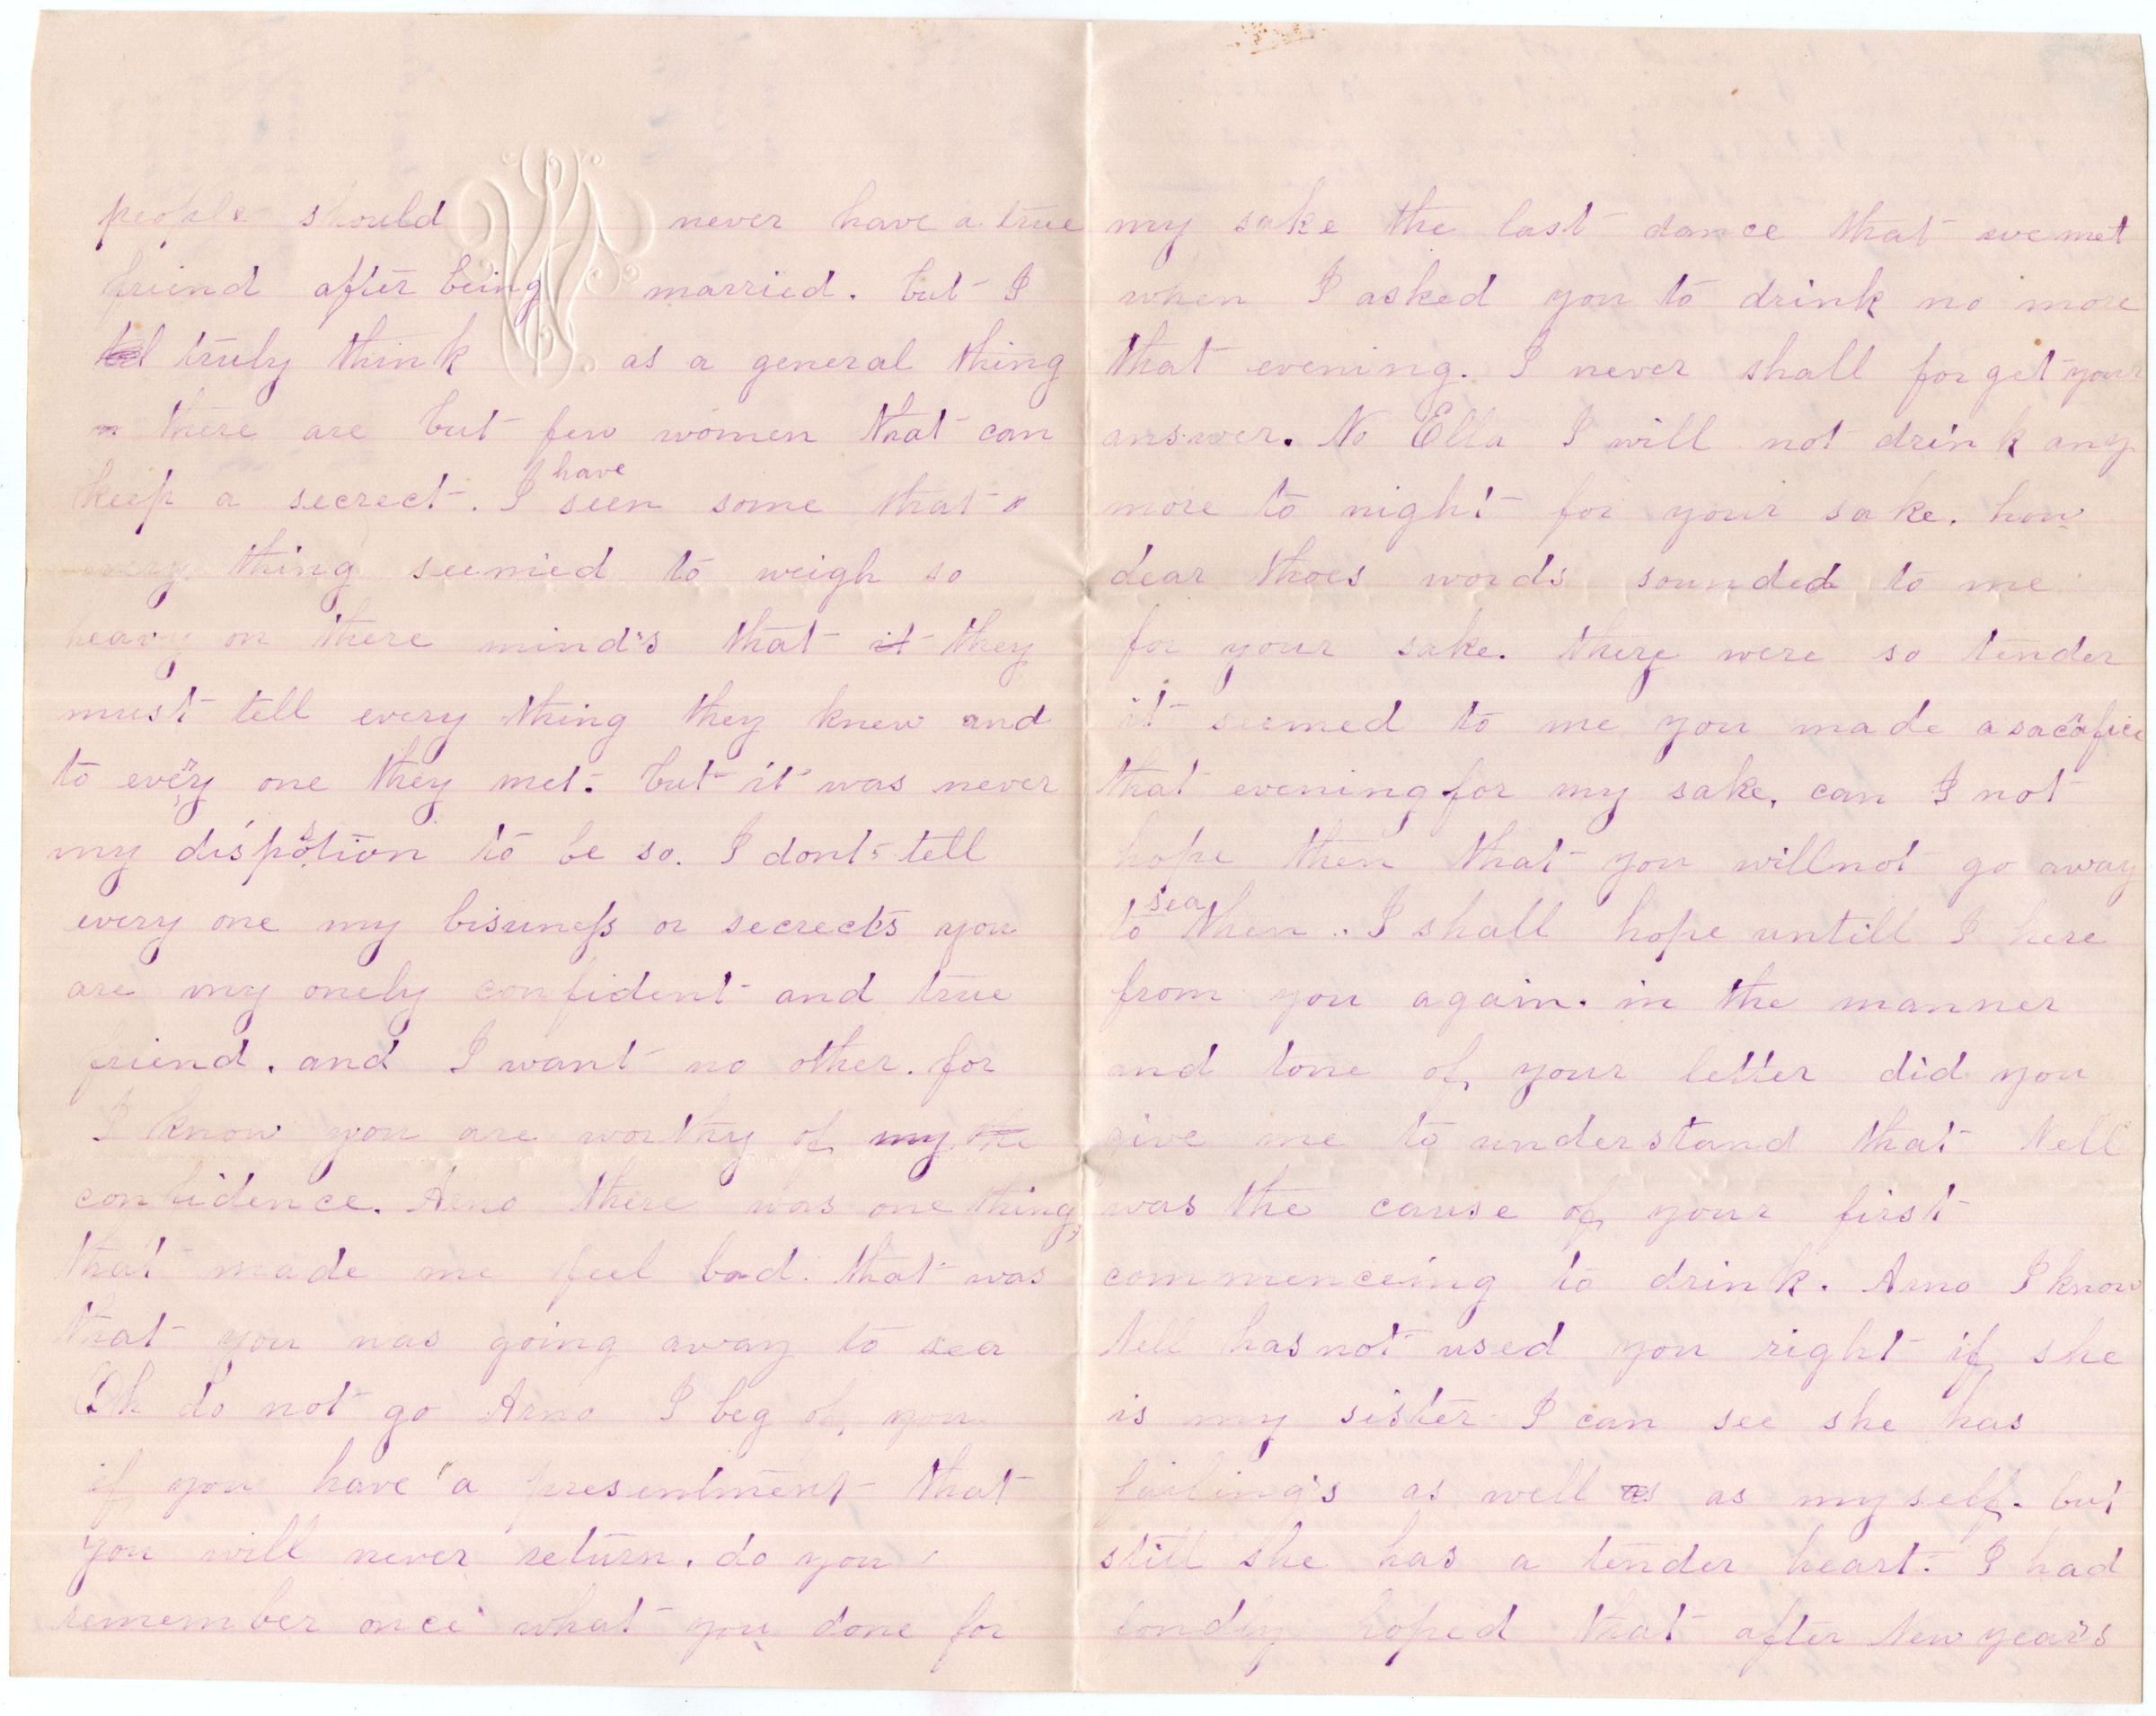 people should never have a true
friend after being married. but I
truly think as a general thing
there are but few women that can
keep a secrect. I have seen some that
every thing seemied to weigh so
heavy on there mind's that it they
must tell every thing they knew and
to every one they met. but it was never
my dispostion to be so. I dont tell
every one my bisuness or secrects you
are my onely confident and true
friend. and I want no other. for
I know you are worthy of my the
confidence. Arno there was one thing
that made me feel bad. that was
that you was going away to sea
Oh do not go Arno I beg of you
if you have a presentment that
you will never return. do you
remember once what you done for
my sake the last dance that we met
when I asked you to drink no more
that evening. I never shall forget your
answer. No Ella I will not drink any
more to night for your sake. how
dear thoes words sounded to me
for your sake. there were so tender
it seemed to me you made a sacrafice
that evening for my sake, can I not
hope then that you will not go away
to sea then. I shall hope untill I here
from you again. in the manner
and tone of your letter did you
give me to understand that Nell
was the cause of your first
commenceing to drink. Arno I know
Nell has not used you right if she
is my sister I can see she has
failing's as well as as my self. but
still she has a tender heart. I had
fondly hoped that after New year's